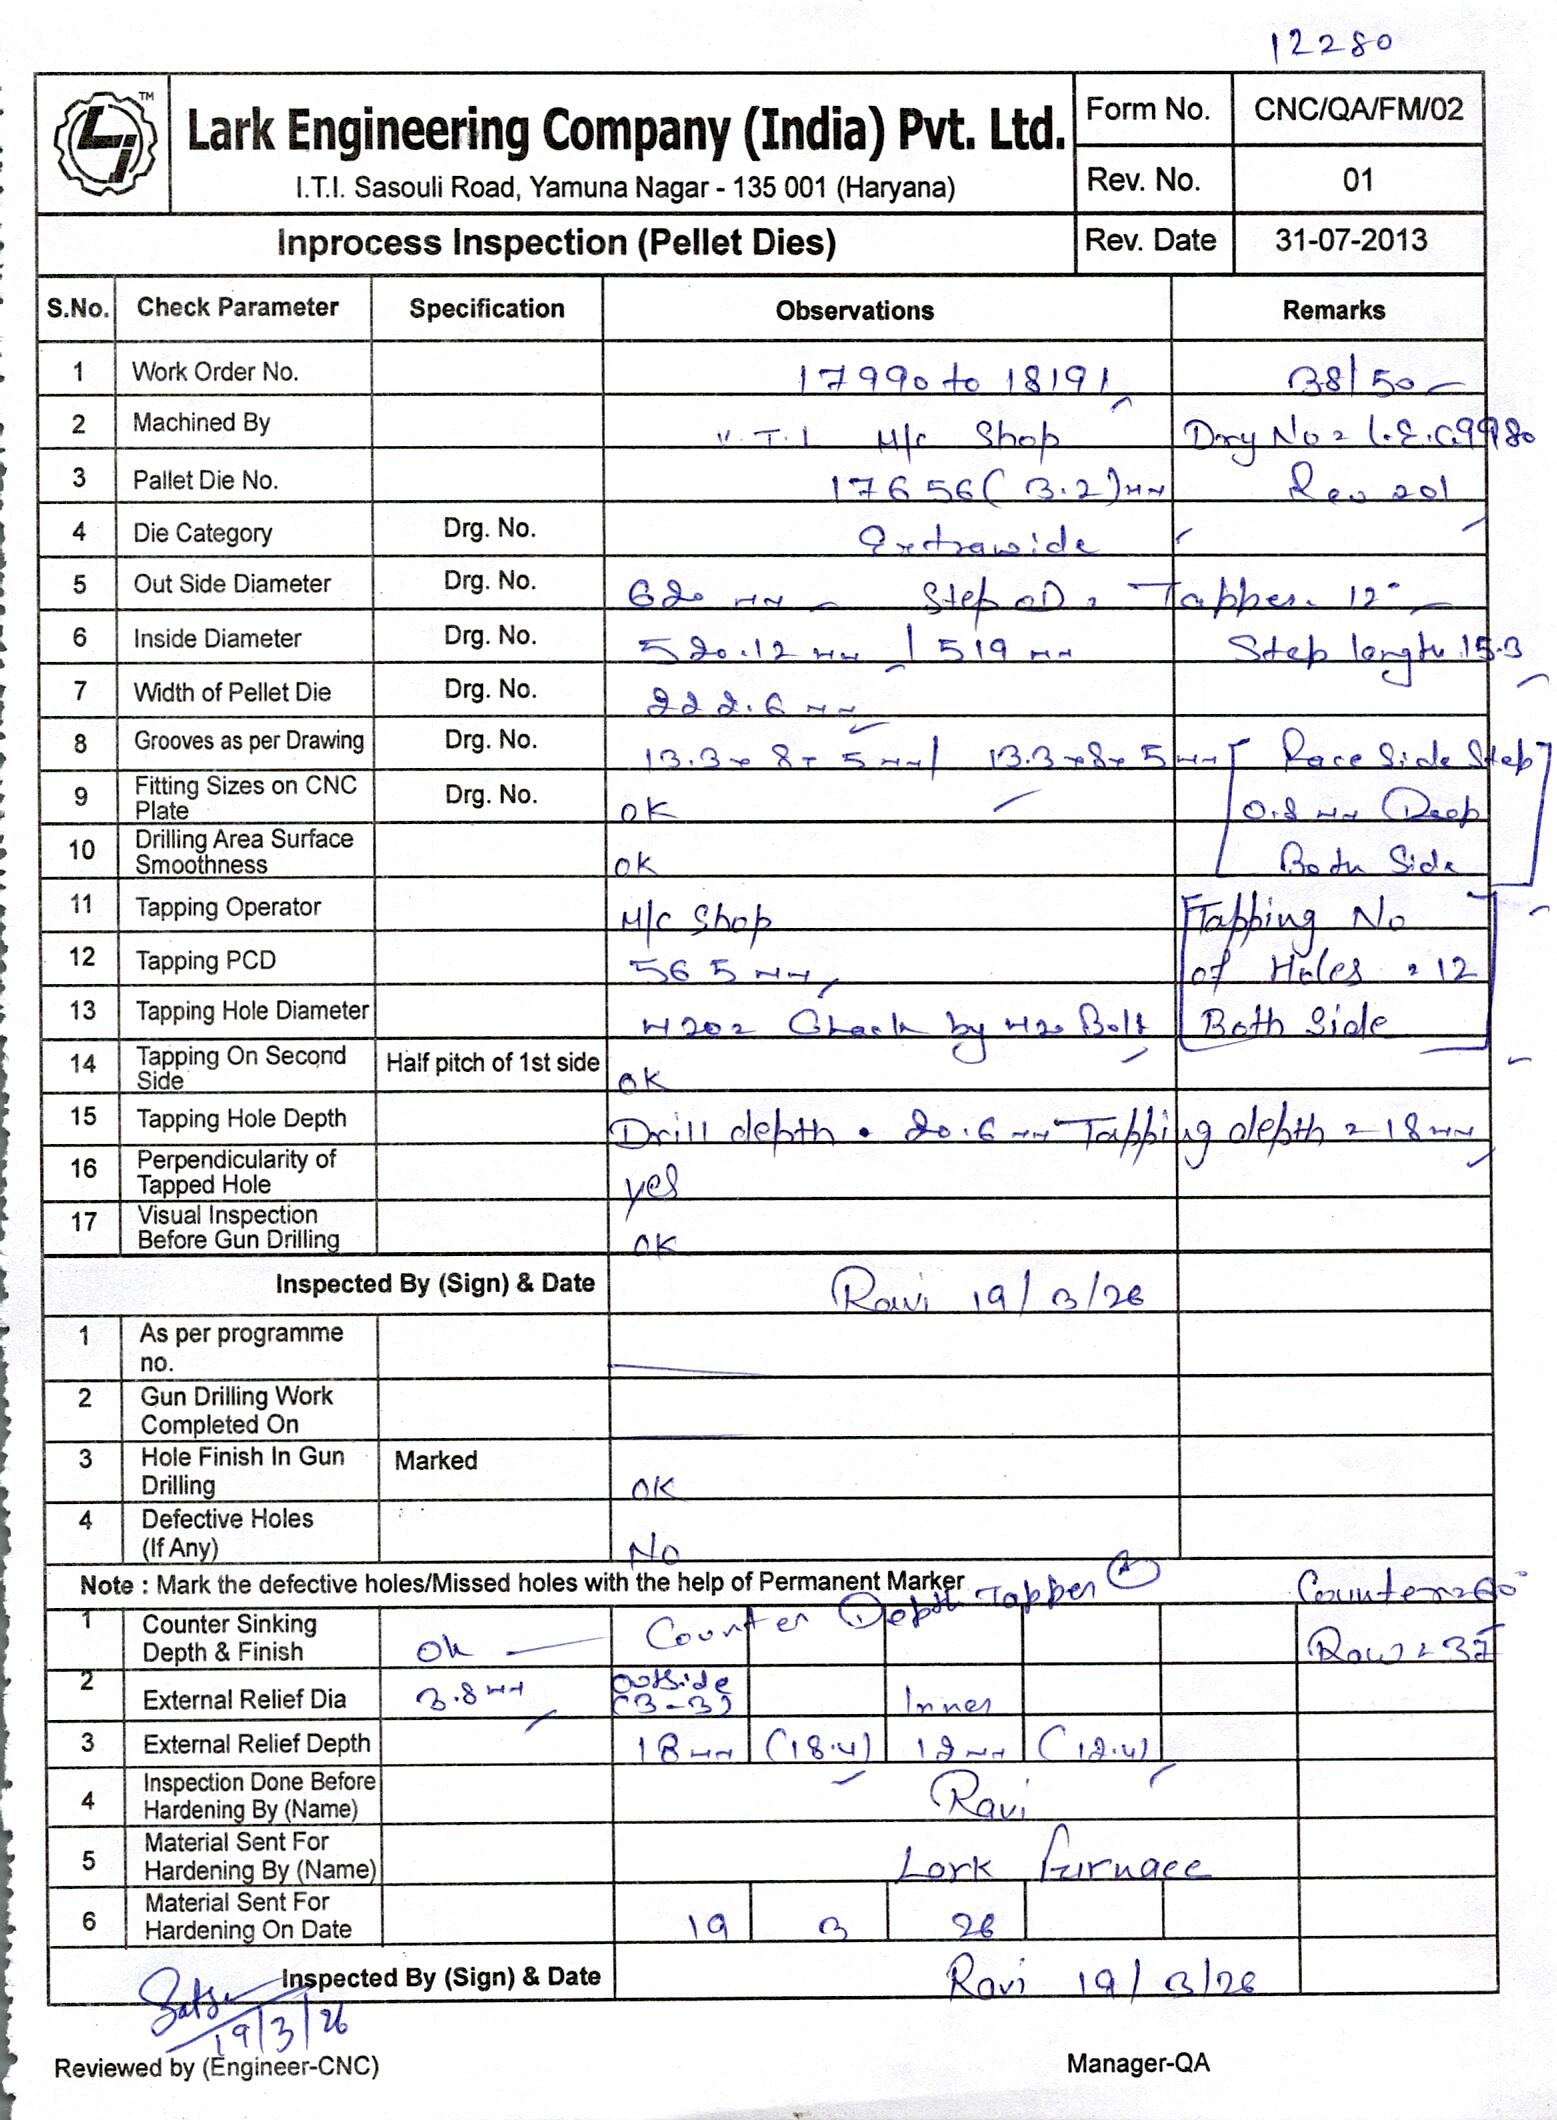 12280
TM
Lark Engineering Company (India) Pvt. Ltd.
I.T.I. Sasouli Road, Yamuna Nagar - 135 001 (Haryana)
Form No. CNC/QA/FM/02
Rev. No. 01
Inprocess Inspection (Pellet Dies) Rev. Date 31-07-2013
S.No. Check Parameter Specification Observations Remarks
1 Work Order No. 17990 to 18191 38/50
2 Machined By V.T.L M/c Shop Drg No = L.E.C.9980
3 Pallet Die No. 17656 (3.2) mm Rev 201
4 Die Category Drg. No. Extrawide
5 Out Side Diameter Drg. No. 620 mm Step OD = Tapper. 12°
6 Inside Diameter Drg. No. 520.12 mm / 519 mm Step length 15.3
7 Width of Pellet Die Drg. No. 222.6 mm
8 Grooves as per Drawing Drg. No. 13.3 x 8 x 5 mm / 13.3 x 8 x 5 mm [ Race Side Step ]
9 Fitting Sizes on CNC Plate Drg. No. OK 0.8 mm Deep
10 Drilling Area Surface Smoothness OK Both Side
11 Tapping Operator M/c Shop Tapping No
12 Tapping PCD 565 mm of Holes = 12
13 Tapping Hole Diameter M20 = Check by M20 Bolt Both Side
14 Tapping On Second Side Half pitch of 1st side OK
15 Tapping Hole Depth Drill depth . 20.6 mm Tapping depth = 18 mm
16 Perpendicularity of Tapped Hole yes
17 Visual Inspection Before Gun Drilling OK
Inspected By (Sign) & Date Ravi 19/3/26
1 As per programme no.
2 Gun Drilling Work Completed On
3 Hole Finish In Gun Drilling Marked OK
4 Defective Holes (If Any) No
Note : Mark the defective holes/Missed holes with the help of Permanent Marker
Counter Depth Tapper Counter = 60°
1 Counter Sinking Depth & Finish Ok Row = 37
2 External Relief Dia 3.8 mm Outside (3-3) Inner
3 External Relief Depth 18 mm (18.4) 12 mm (12.4)
4 Inspection Done Before Hardening By (Name) Ravi
5 Material Sent For Hardening By (Name) Lark Furnace
6 Material Sent For Hardening On Date 19 3 26
Inspected By (Sign) & Date Ravi 19/3/26
19/3/26
Reviewed by (Engineer-CNC) Manager-QA